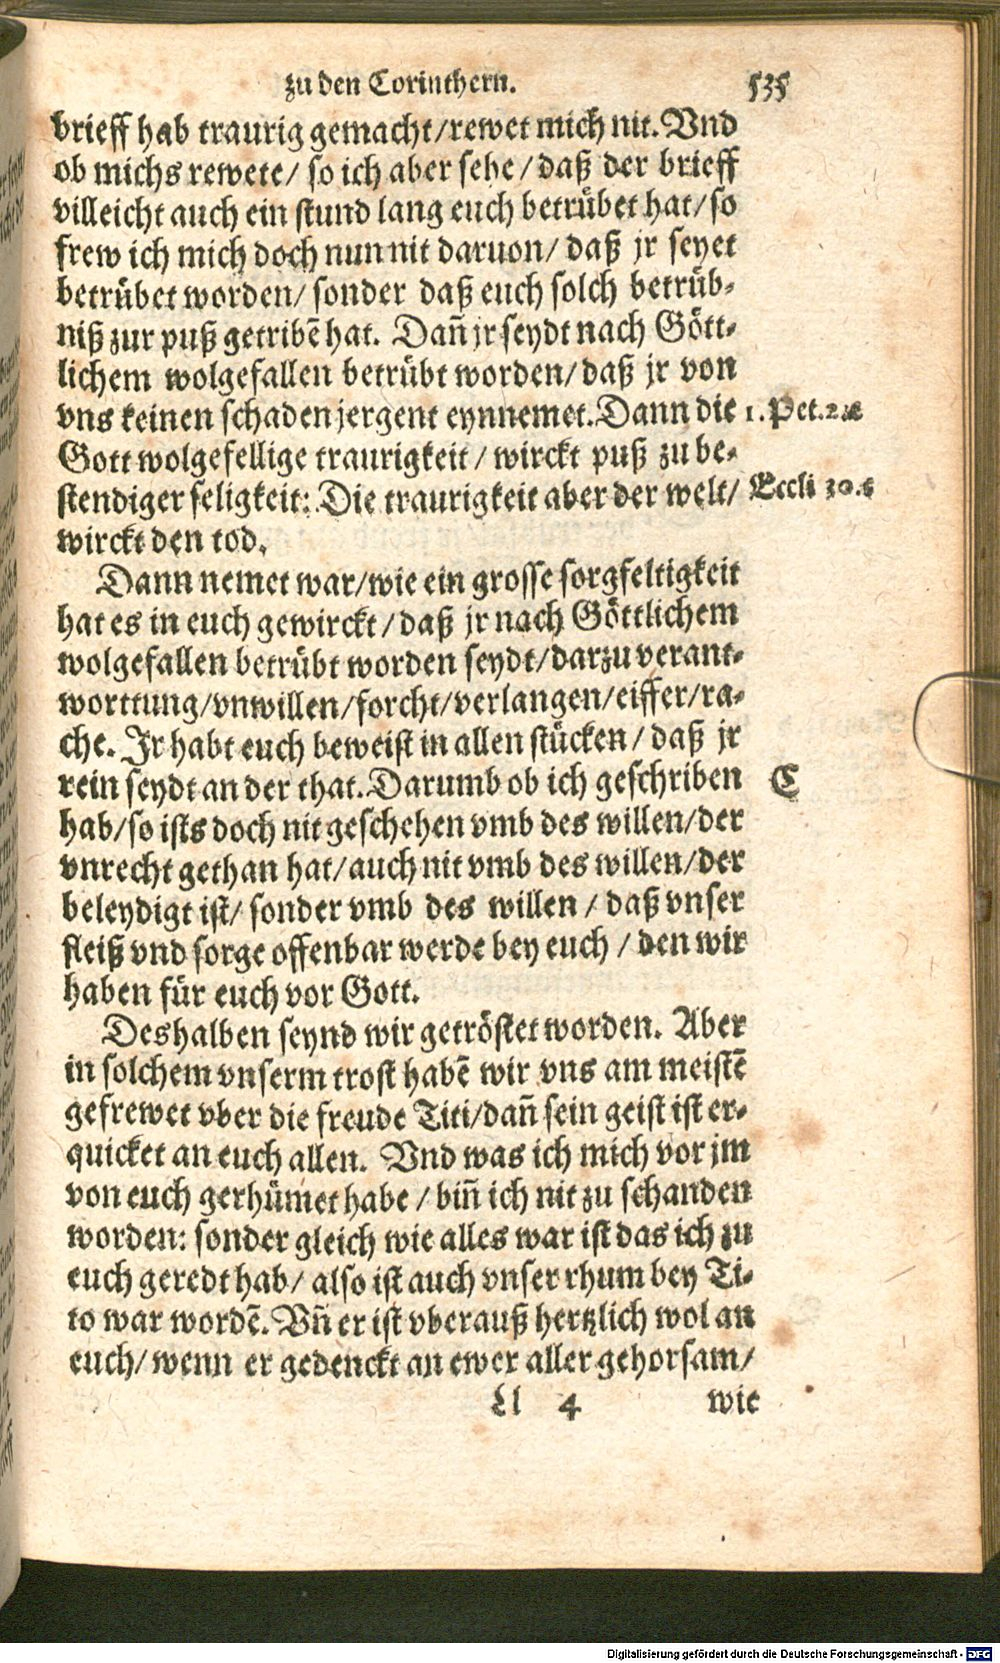 zu den Corinthern. 535
brieff hab traurig gemacht/rewet mich nit. Vnd
ob michs rewete/ so ich aber sehe/daß der brieff
villeicht auch ein stund lang euch betrübet hat/so
frew ich mich doch nun nit daruon/ daß jr seyet
betrübet worden/ sonder daß euch solch betrüb-
niß zur puß getribẽ hat. Dañ jr seydt nach Gött-
lichem wolgefallen betrübt worden/daß jr von
vns keinen schaden jergent eynnemet. Dann die 1. Pet. 2.
Gott wolgefellige traurigkeit/ wirckt puß zu be-
stendiger seligkeit: Die traurigkeit aber der welt/ Eccli 30.
wirckt den tod.
Dann nemet war/wie ein grosse sorgfeltigkeit
hat es in euch gewirckt/daß jr nach Göttlichem
wolgefallen betrübt worden seydt/darzu verant-
worttung/vnwillen/forcht/verlangen/eiffer/ra-
che. Ir habt euch beweist in allen stücken/daß jr
rein seydt an der that. Darumb ob ich geschriben C
hab/so ists doch nit geschehen vmb des willen/der
vnrecht gethan hat/auch nit vmb des willen/der
beleydigt ist/ sonder vmb des willen/ daß vnser
fleiß vnd sorge offenbar werde bey euch/ den wir
haben für euch vor Gott.
Deshalben seynd wir getröstet worden. Aber
in solchem vnserm trost habẽ wir vns am meistẽ
gefrewet vber die freude Titi/dañ sein geist ist er-
quicket an euch allen. Vnd was ich mich vor jm
von euch gerhümet habe/ biñ ich nit zu schanden
worden: sonder gleich wie alles war ist das ich zu
euch geredt hab/ also ist auch vnser rhum bey Ti-
to war wordẽ. Vñ er ist vberauß hertzlich wol an
euch/ wenn er gedenckt an ewer aller gehorsam/
Ll 4 wie
Digitalisierung gefördert durch die Deutsche Forschungsgemeinschaft - DFG